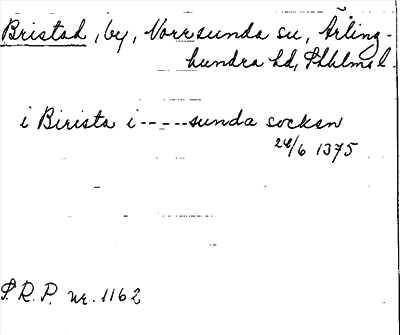 Bristad, by, Norrsunda sn, Ärling-
hundra hd, Sthlms l.
i Birista i-----sunda socken
24/6 1375
S.R.P. nr. 1162